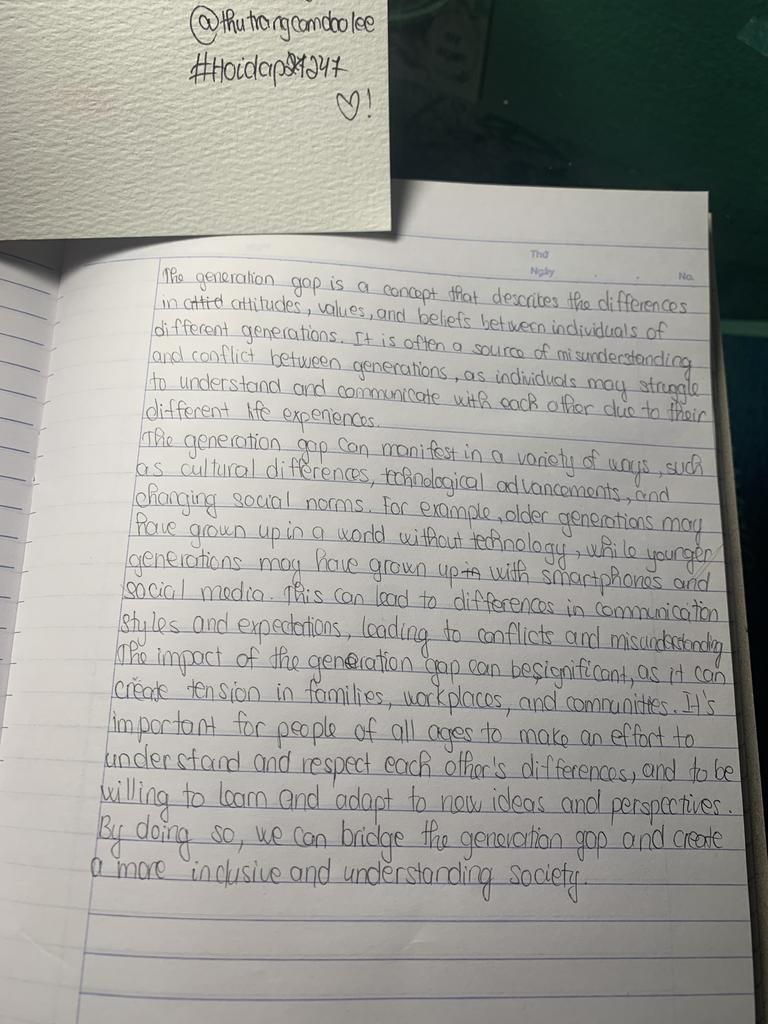 @thutrangcamdoolee
#Hoidap247
♡!
Thứ
Ngày . . No.
The generation gap is a concept that describes the differences
in attid attitudes, values, and beliefs between individuals of
different generations. It is often a source of misunderstanding
and conflict between generations, as individuals may struggle
to understand and communicate with each other due to their
different life experiences.
The generation gap can manifest in a variety of ways, such
as cultural differences, technological advancements, and
changing social norms. For example, older generations may
have grown up in a world without technology, while younger
generations may have grown up in with smartphones and
social media. This can lead to differences in communication
styles and expectations, leading to conflicts and misunderstanding
The impact of the generation gap can be significant, as it can
create tension in families, workplaces, and communities. It's
important for people of all ages to make an effort to
understand and respect each other's differences, and to be
willing to learn and adapt to new ideas and perspectives.
By doing so, we can bridge the generation gap and create
a more inclusive and understanding society.